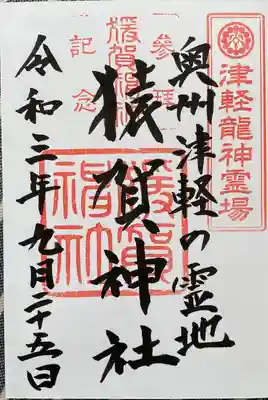 津軽龍神霊場
奥州津軽の霊地
参拝
記念
猿賀神社
猿賀
神社
令和三年九月二十五日